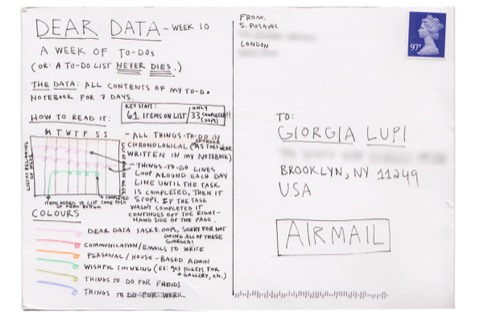 DEAR DATA - WEEK 10
A WEEK OF TO-DOS
(OR: A TO-DO LIST NEVER DIES.)
THE DATA: ALL CONTENTS OF MY TO-DO
NOTEBOOK FOR 7 DAYS.
HOW TO READ IT:
KEY STAT:
61 ITEMS ON LIST
ONLY
33 COMPLETED!
(OOPS)
M T W T F S S
- ALL THINGS-TO-DO IN
CHRONOLOGICAL (AS THEY WERE
WRITTEN IN MY NOTEBOOK)
- THINGS-TO-DO LINES
LOOP AROUND EACH DAY
LINE UNTIL THE TASK
IS COMPLETED, THEN IT
STOPS. IF THE TASK
WASN'T COMPLETED IT
CONTINUES OFF THE RIGHT-
HAND SIDE OF THE PAGE.
COLOURS
DEAR DATA TASKS: OOPS, SORRY FOR NOT
DOING ALL OF THESE
GIORGIA!
COMMUNICATION/EMAILS TO WRITE
PERSONAL / HOUSE-BASED ADMIN
WISHFUL THINKING (EX: GET TICKETS FOR
A GALLERY, ETC.)
THINGS TO DO FOR FRIENDS
THINGS TO DO FOR WORK
FROM:
S. POSAVEC
LONDON
97P
TO:
GIORGIA LUPI
BROOKLYN, NY 11249
USA
AIRMAIL